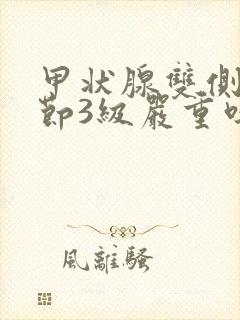 甲状腺雙側
節3級嚴重
風離騷